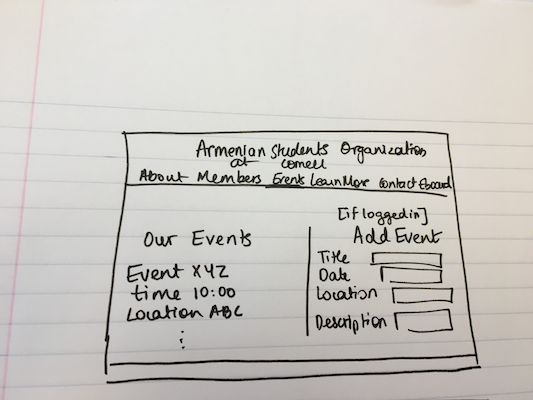 Armenian Students Organization
at Cornell
About Members Events Learn More Contact Eboard
[if logged in]
Our Events
Event XYZ
time 10:00
Location ABC
Add Event
Title
Date
Location
Description